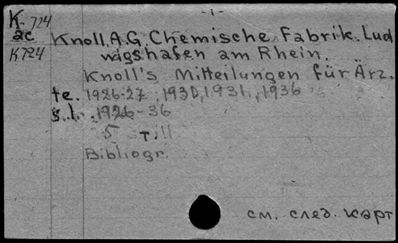 - i -
K. 724
ac
K724
Knoll, A.G. Chemische Fabrik. Lud
wigshafen am Rhein.
Knoll's Mitteilungen für Ärz.
te. 1926-27, 1930, 1931, 1936
s.l. 1926-36
5 т. ill
Bibliogr.
см. след. карт